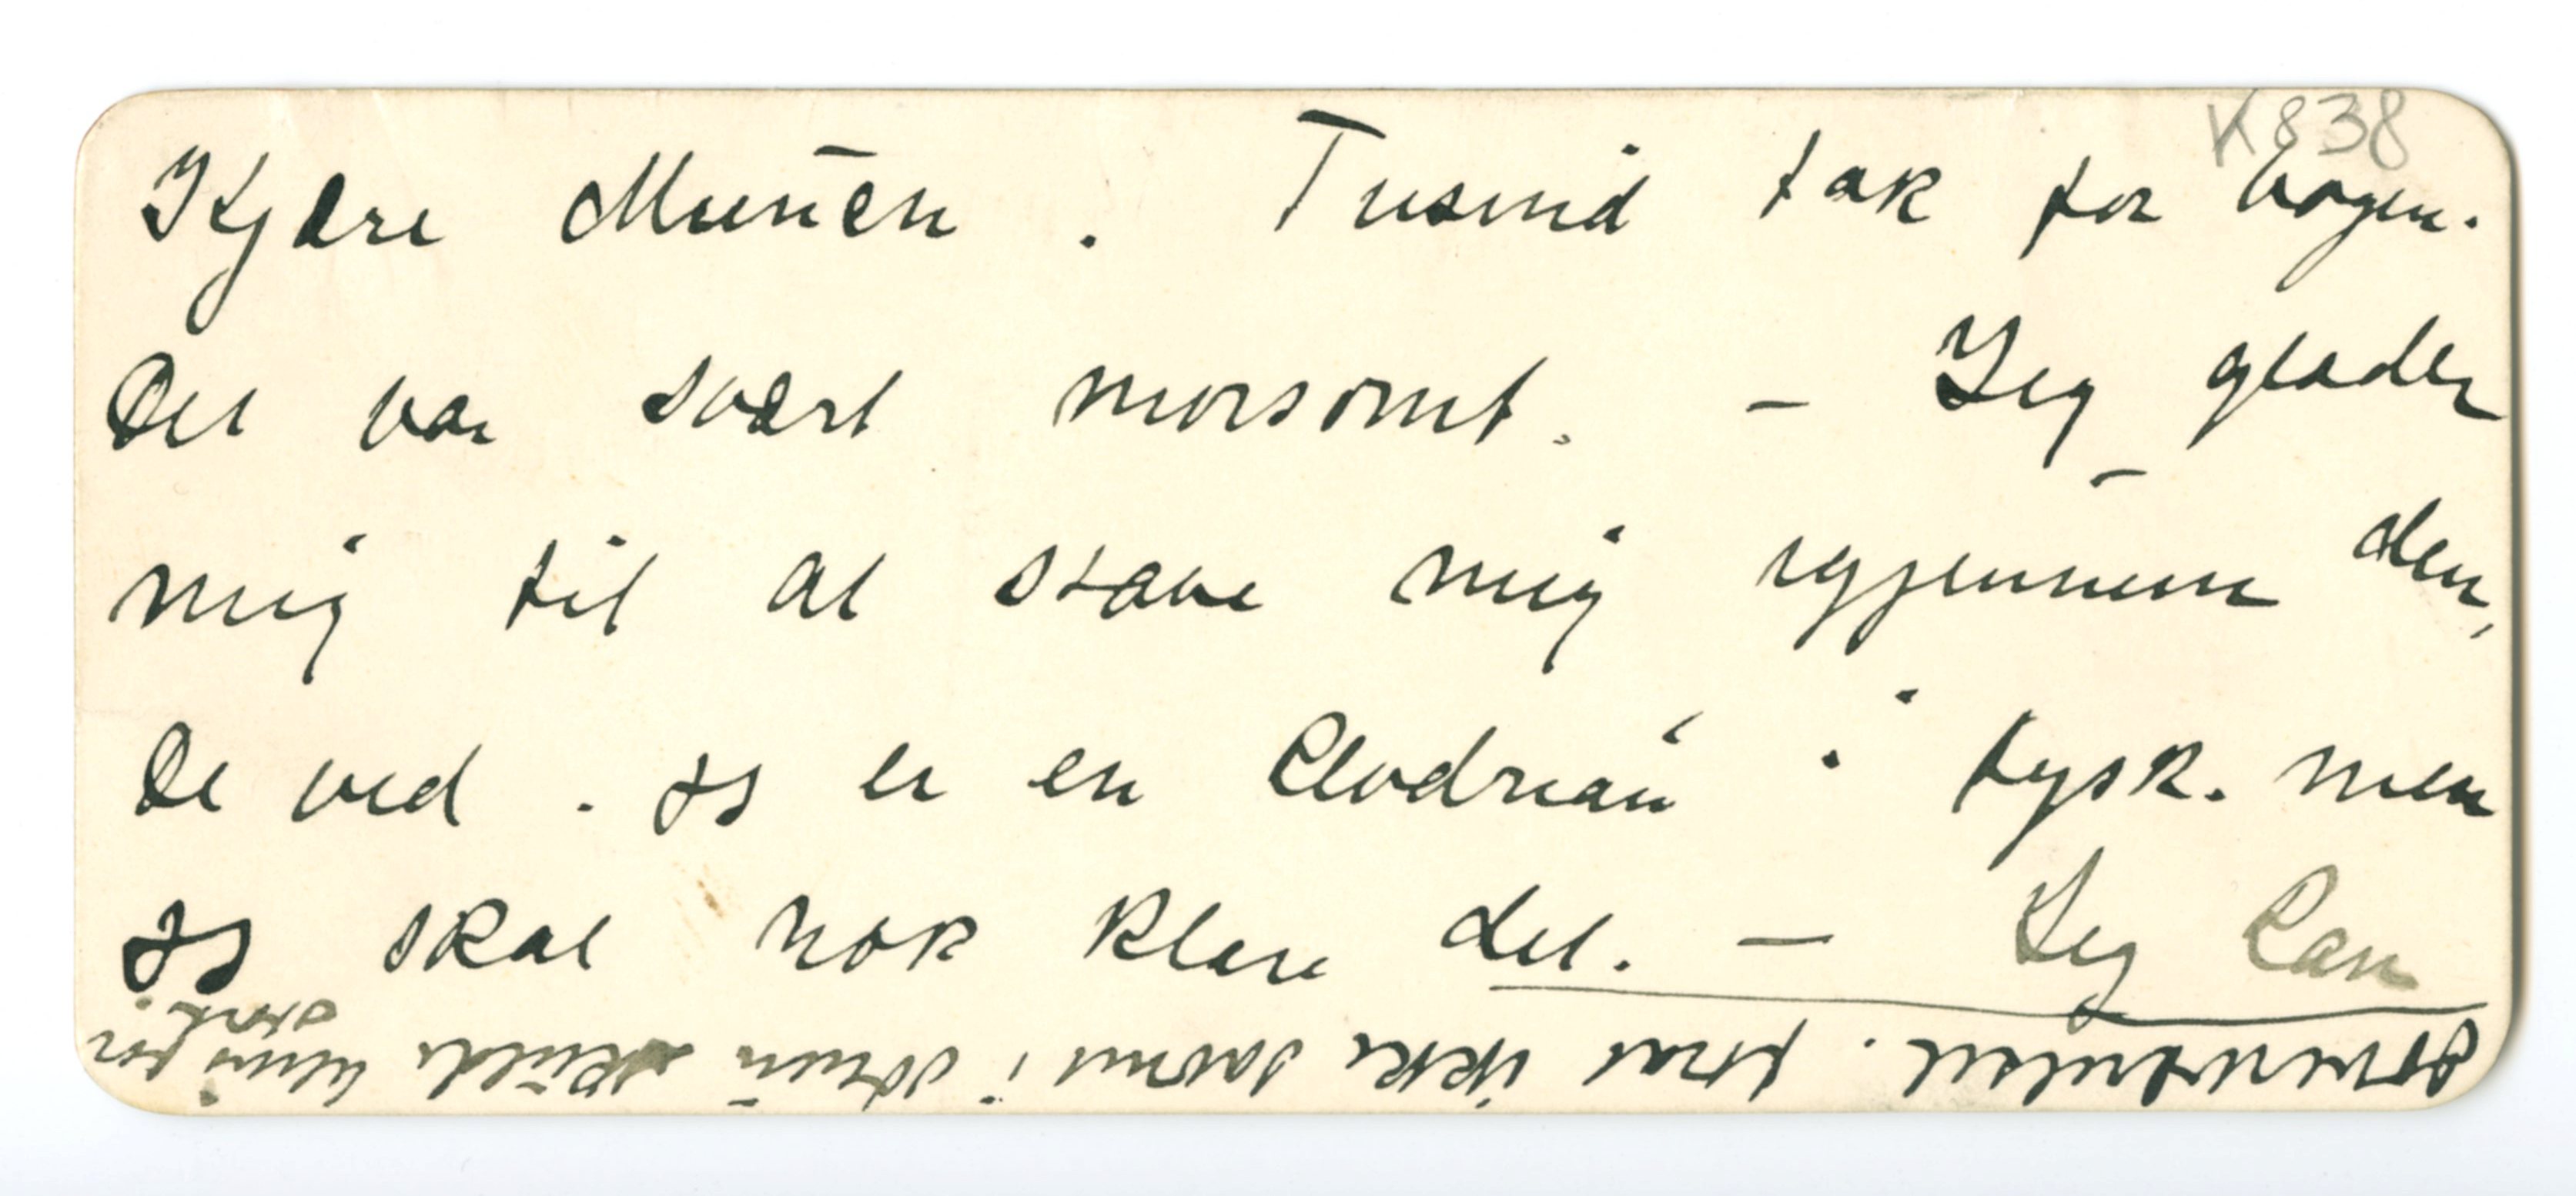 K838
Kjære Munch. Tusind tak for bogen.
Det var svært morsomt. – Jeg glæder
mig til at stave mig igjennem den,
De ved. jeg er en klodrian i tysk. men
jeg skal nok klare det. — Jeg kan
ikke i skulde blive for
stærk.